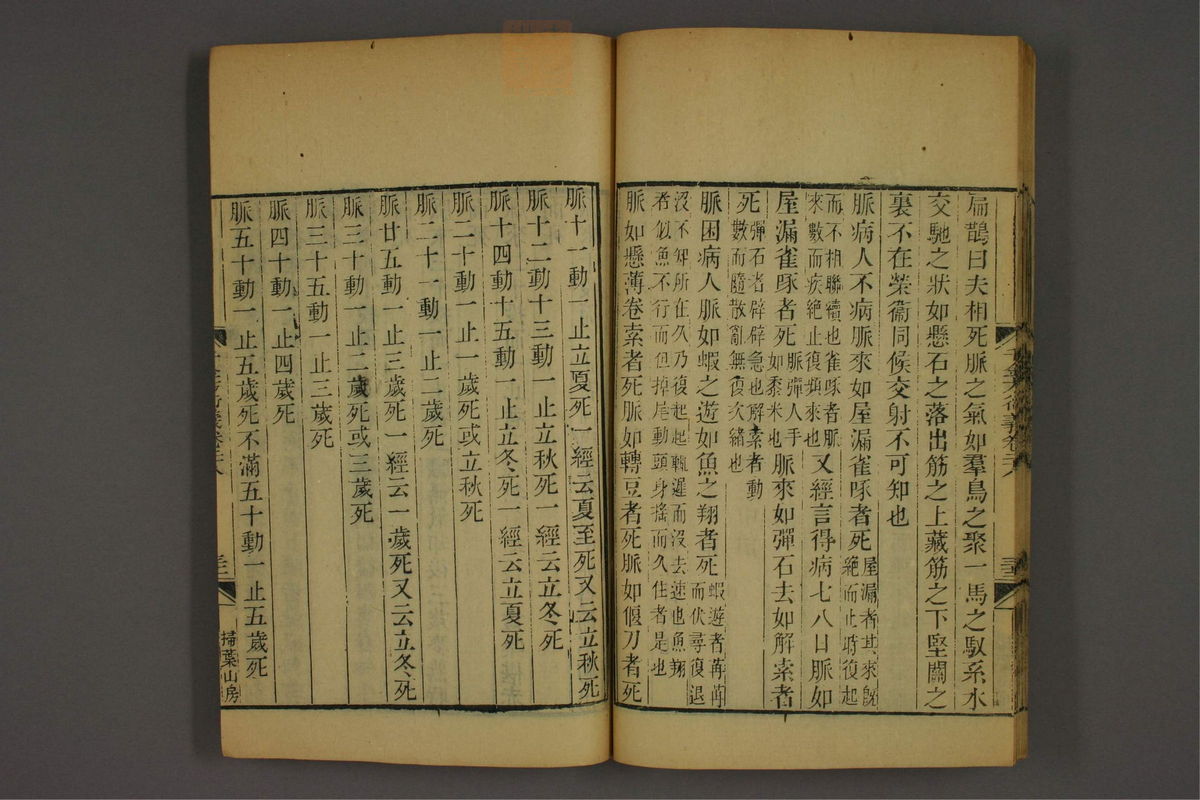 扁鵲曰夫相死脈之氣如羣鳥之聚一馬之馭系水
交馳之狀如懸石之落出筋之上藏筋之下堅關之
裏不在榮衞同候交射不可知也
脈病人不病脈來如屋漏雀啄者死屋漏者其來旣絕而止時復起
而不相聯續也雀啄者脈來數而疾絕止復頻來也又經言得病七八日脈如
屋漏雀啄者死脈彈人手如黍米也脈來如彈石去如解索者
死彈石者辟辟急也解索者動數而隨散亂無復次緖也
脈困病人脈如蝦之遊如魚之翔者死蝦遊者苒苒而伏尋復退
沒不知所在久乃復起起輒遲而沒去速也魚翔者似魚不行而但掉尾動頭身搖而久住者是也
脈如懸薄卷索者死脈如轉豆者死脈如偃刀者死
脈十一動一止立夏死一經云夏至死又云立秋死
脈十二動十三動一止立秋死一經云立冬死
脈十四動十五動一止立冬死一經云立夏死
脈二十動一止一歲死或立秋死
脈二十一動一止二歲死
脈廿五動一止三歲死一經云一歲死又云立冬死
脈三十動一止二歲死或三歲死
脈三十五動一止三歲死
脈四十動一止四歲死
脈五十動一止五歲死不滿五十動一止五歲死
掃葉山房